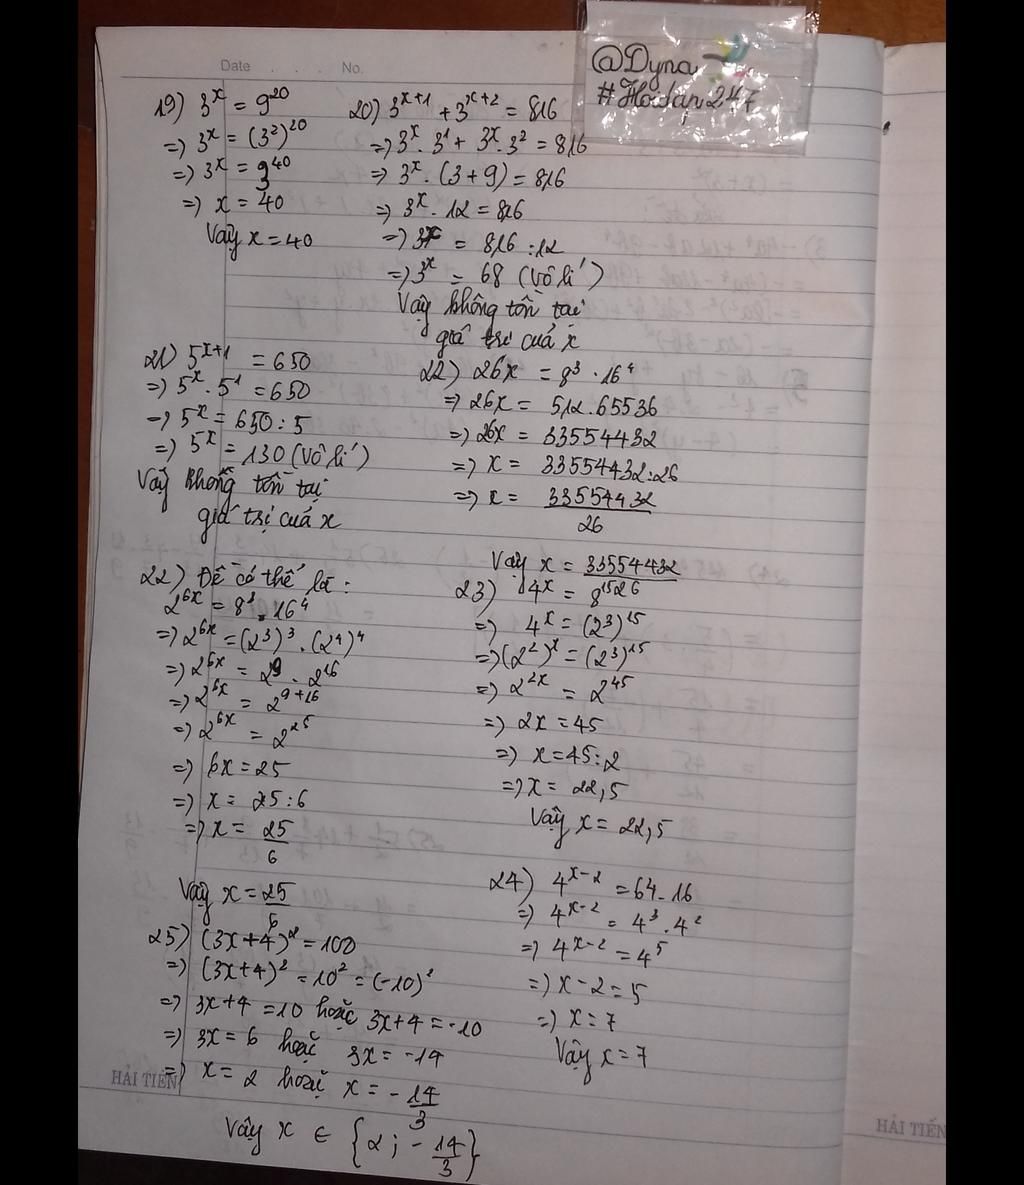 Date . . . No.
@Dyna
#Hoidap247
19) 3^x = 9^20
=> 3^x = (3^2)^20
=> 3^x = 3^40
=> x = 40
Vậy x = 40
20) 3^{x+1} + 3^{x+2} = 816
=> 3^x . 3^1 + 3^x . 3^2 = 816
=> 3^x . (3 + 9) = 816
=> 3^x . 12 = 816
=> 3^x = 816 : 12
=> 3^x = 68 (Vô lí)
Vậy không tồn tại
giá trị của x
21) 5^{x+1} = 650
=> 5^x . 5^1 = 650
=> 5^x = 650 : 5
=> 5^x = 130 (Vô lí)
Vậy không tồn tại
giá trị của x
22) 26x = 8^3 . 16^4
=> 26x = 512 . 65536
=> 26x = 33554432
=> x = 33554432 : 26
=> x = 33554432/26
Vậy x = 33554432/26
22) Đề có thể là :
2^{6x} = 8^3 . 16^4
=> 2^{6x} = (2^3)^3 . (2^4)^4
=> 2^{6x} = 2^9 . 2^16
=> 2^{6x} = 2^{9+16}
=> 2^{6x} = 2^25
=> 6x = 25
=> x = 25 : 6
=> x = 25/6
Vậy x = 25/6
23) 4^x = 8^15
=> 4^x = (2^3)^15
=> (2^2)^x = (2^3)^15
=> 2^{2x} = 2^45
=> 2x = 45
=> x = 45 : 2
=> x = 22,5
Vậy x = 22,5
24) 4^{x-2} = 64 . 16
=> 4^{x-2} = 4^3 . 4^2
=> 4^{x-2} = 4^5
=> x - 2 = 5
=> x = 7
Vậy x = 7
25) (3x+4)^2 = 100
=> (3x+4)^2 = 10^2 = (-10)^2
=> 3x+4 = 10 hoặc 3x+4 = -10
=> 3x = 6 hoặc 3x = -14
=> x = 2 hoặc x = -14/3
Vậy x ∈ {2 ; -14/3}
HẢI TIẾN
HẢI TIẾN